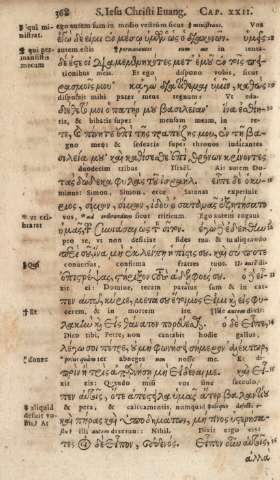 368 S. Iesu Christi Euang. CAP. XXII.
qui mi- ego autem sum in medio vestrum sicut ministrans. Vos
nistrat. ἐγὼ δέ εἰμι ἐν μέσῳ ὑμῶν ὡς ὁ διακονῶν. ὑμεῖς
qui per- autem estis in tenta-
manistis
mecum δέ ἐστε οἱ διαμεμενηκότες μετ' ἐμοῦ ἐν τοῖς πει-
tionibus meis. Et ego dispono vobis, sicut
ρασμοῖς μου· κἀγὼ διατίθεμαι ὑμῖν, καθὼς
disposuit mihi pater meus regnum: Vt
διέθετό μοι ὁ πατήρ μου βασιλείαν· ἵνα ἐσθίη-
tis, & bibatis super mensam meam, in re-
τε, καὶ πίνητε ἐπὶ τῆς τραπέζης μου, ἐν τῇ βα-
gno meo: & sedeatis super thronos iudicantes
σιλείᾳ μου· καὶ καθίσησθε ἐπὶ θρόνων κρίνοντες
duodecim tribus Israel. Ait autem Do-
τὰς δώδεκα φυλὰς τοῦ ἰσραήλ. εἶπε δὲ ὁ κύ-
minus: Simon, Simon, ecce Satanas expetiuit
ριος, σίμων, σίμων, ἰδοὺ ὁ σατανᾶς ἐξῃτήσατο
vt cri- vos, sicut triticum. Ego autem rogaui
braret ὑμᾶς, τοῦ σινιάσαι ὡς τὸν σῖτον. ἐγὼ δὲ ἐδεήθην
pro te, vt non deficiat fides tua. & tu aliquando
περὶ σοῦ, ἵνα μὴ ἐκλείπῃ ἡ πίστις σου. καὶ σύ ποτε
Qui conuersus, confirma fratres tuos.
ἐπιστρέψας, στήριξον τοὺς ἀδελφούς σου. ὁ δὲ εἶ-
xit ei: Domine, tecum paratus sum & in car-
πεν αὐτῷ, κύριε, μετὰ σοῦ ἕτοιμός εἰμι καὶ εἰς φυ-
Et cerem, & in mortem ire.
λακὴν καὶ εἰς θάνατον πορεύεσθαι. ὁ δὲ εἶπεν,
Dico tibi, Petre, non cantabit hodie gallus,
λέγω σοι πέτρε, οὐ μὴ φωνήσῃ σήμερον ἀλέκτωρ,
donec abneges nosse me. Et
πρὶν ἢ τρὶς ἀπαρνήσῃ μὴ εἰδέναι με. καὶ εἶ-
xit eis: Quando misi vos sine sacculo,
πεν αὐτοῖς, ὅτε ἀπέστειλα ὑμᾶς ἄτερ βαλαντίου
aliquid & pera, & calceamentis, nunquid
defuit vo-
bis? At καὶ πήρας καὶ ὑποδημάτων, μή τινος ὑστερήσα-
Nihil. Dixit ergo eis:
τε; οἱ δὲ εἶπον, οὐδενός. εἶπεν οὖν αὐτοῖς,
ἀλλὰ